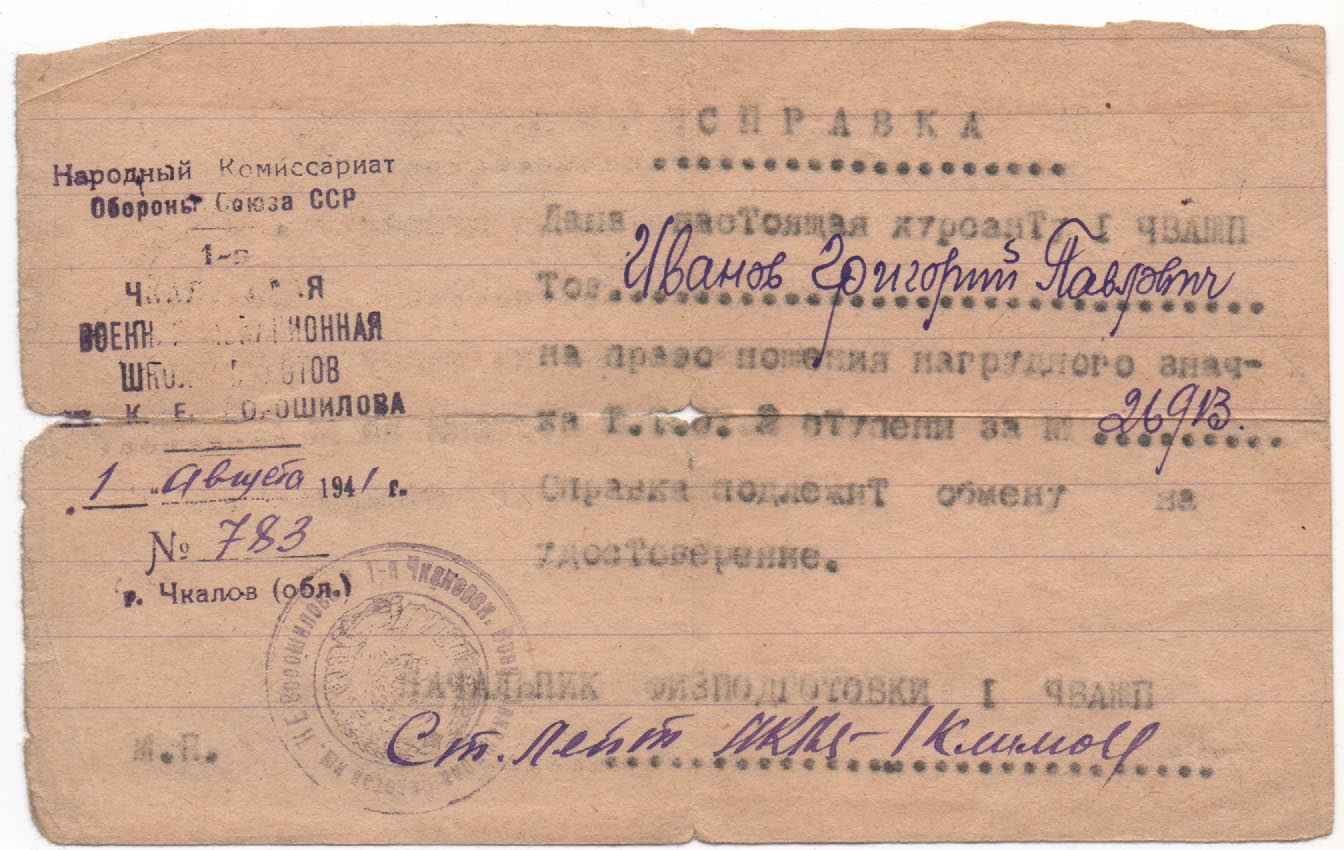 СПРАВКА
Народный Комиссариат
Обороны Союза ССР
1-я
ВОЕНН
ШКОЛ
К. Е. ВОРОШИЛОВА
1 августа 1941 г.
№ 783
г. Чкалов (обл.)
Дана настоящая курсанту I ЧВАШП
Тов. Иванов Григорий Павлович
на право ношения нагрудного знач-
ка Г.Т.О. 2 ступени за № 26913.
Справка подлежит обмену на
удостоверение.
НАЧАЛЬНИК ФИЗПОДГОТОВКИ I ЧВАШП
Ст. лейт Климов
М.П.